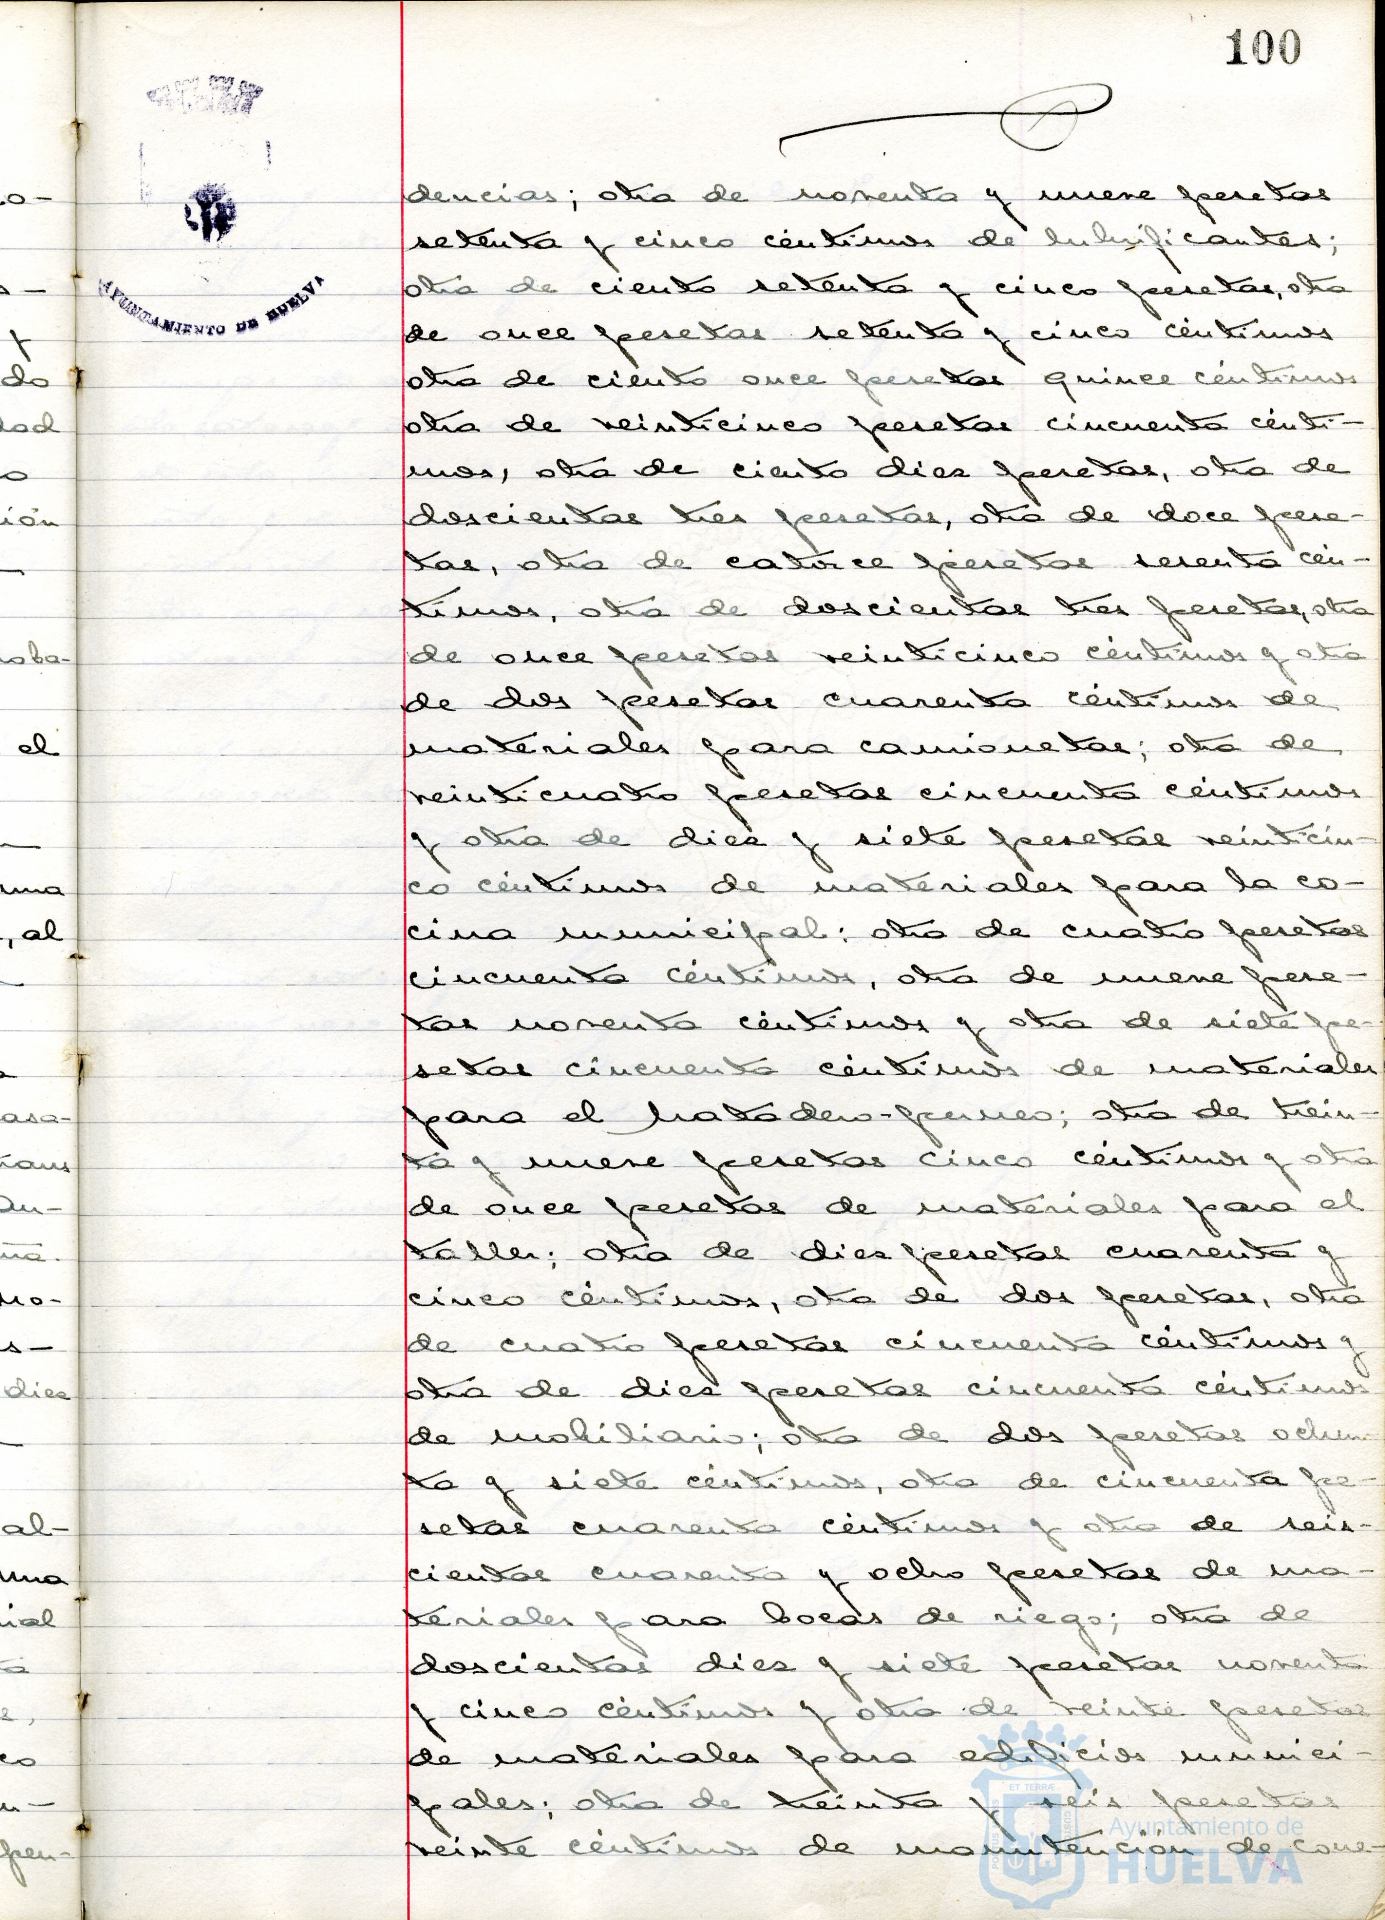 100
AYUNTAMIENTO DE HUELVA
dencias; otra de noventa y nueve pesetas
setenta y cinco céntimos de lubrificantes;
otra de ciento setenta y cinco pesetas, otra
de once pesetas setenta y cinco céntimos
otra de ciento once pesetas quince céntimos
otra de veinticinco pesetas cincuenta cénti-
mos, otra de ciento diez pesetas, otra de
doscientas tres pesetas, otra de doce pese-
tas, otra de catorce pesetas sesenta cén-
timos, otra de doscientas tres pesetas, otra
de once pesetas veinticinco céntimos y otra
de dos pesetas cuarenta céntimos de
materiales para camionetas; otra de
veinticuatro pesetas cincuenta céntimos
y otra de diez y siete pesetas veinticin-
co céntimos de materiales para la co-
cina municipal; otra de cuatro pesetas
cincuenta céntimos, otra de nueve pese-
tas noventa céntimos y otra de siete pe-
setas cincuenta céntimos de materiales
para el Matadero-; otra de trein-
ta y nueve pesetas cinco céntimos y otra
de once pesetas de materiales para el
taller; otra de diez pesetas cuarenta y
cinco céntimos, otra de dos pesetas, otra
de cuatro pesetas cincuenta céntimos y
otra de diez pesetas cincuenta céntimos
de mobiliario; otra de dos pesetas ochen-
ta y siete céntimos, otra de cincuenta pe-
setas cuarenta céntimos y otra de seis-
cientas cuarenta y ocho pesetas de ma-
teriales para bocas de riego; otra de
doscientas diez y siete pesetas noventa
y cinco céntimos y otra de veinte pesetas
de materiales para edificios munici-
pales; otra de treinta y seis pesetas
veinte céntimos de manutención de cone-
ET TERRÆ
Ayuntamiento de
HUELVA